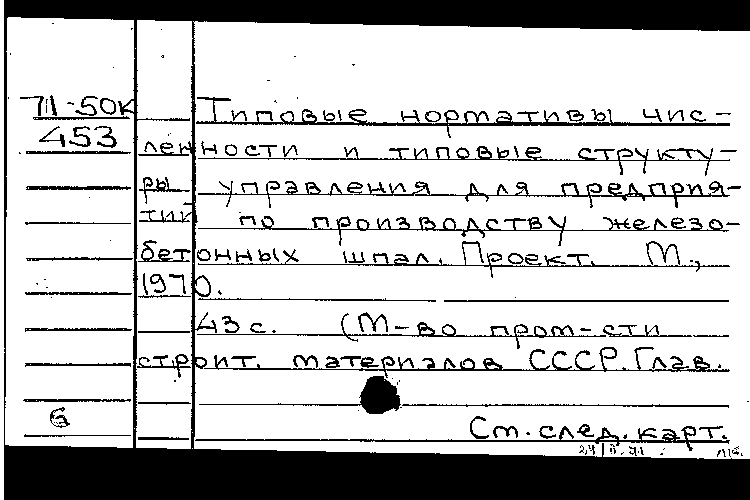 71-50к
453
Типовые нормативы чис-
ленности и типовые структу-
ры управления для предприя-
тий по производству железо-
бетонных шпал. Проект. М.,
1970.
43 с. (М-во пром-сти
строит. материалов СССР. Глав.
См. след. карт.